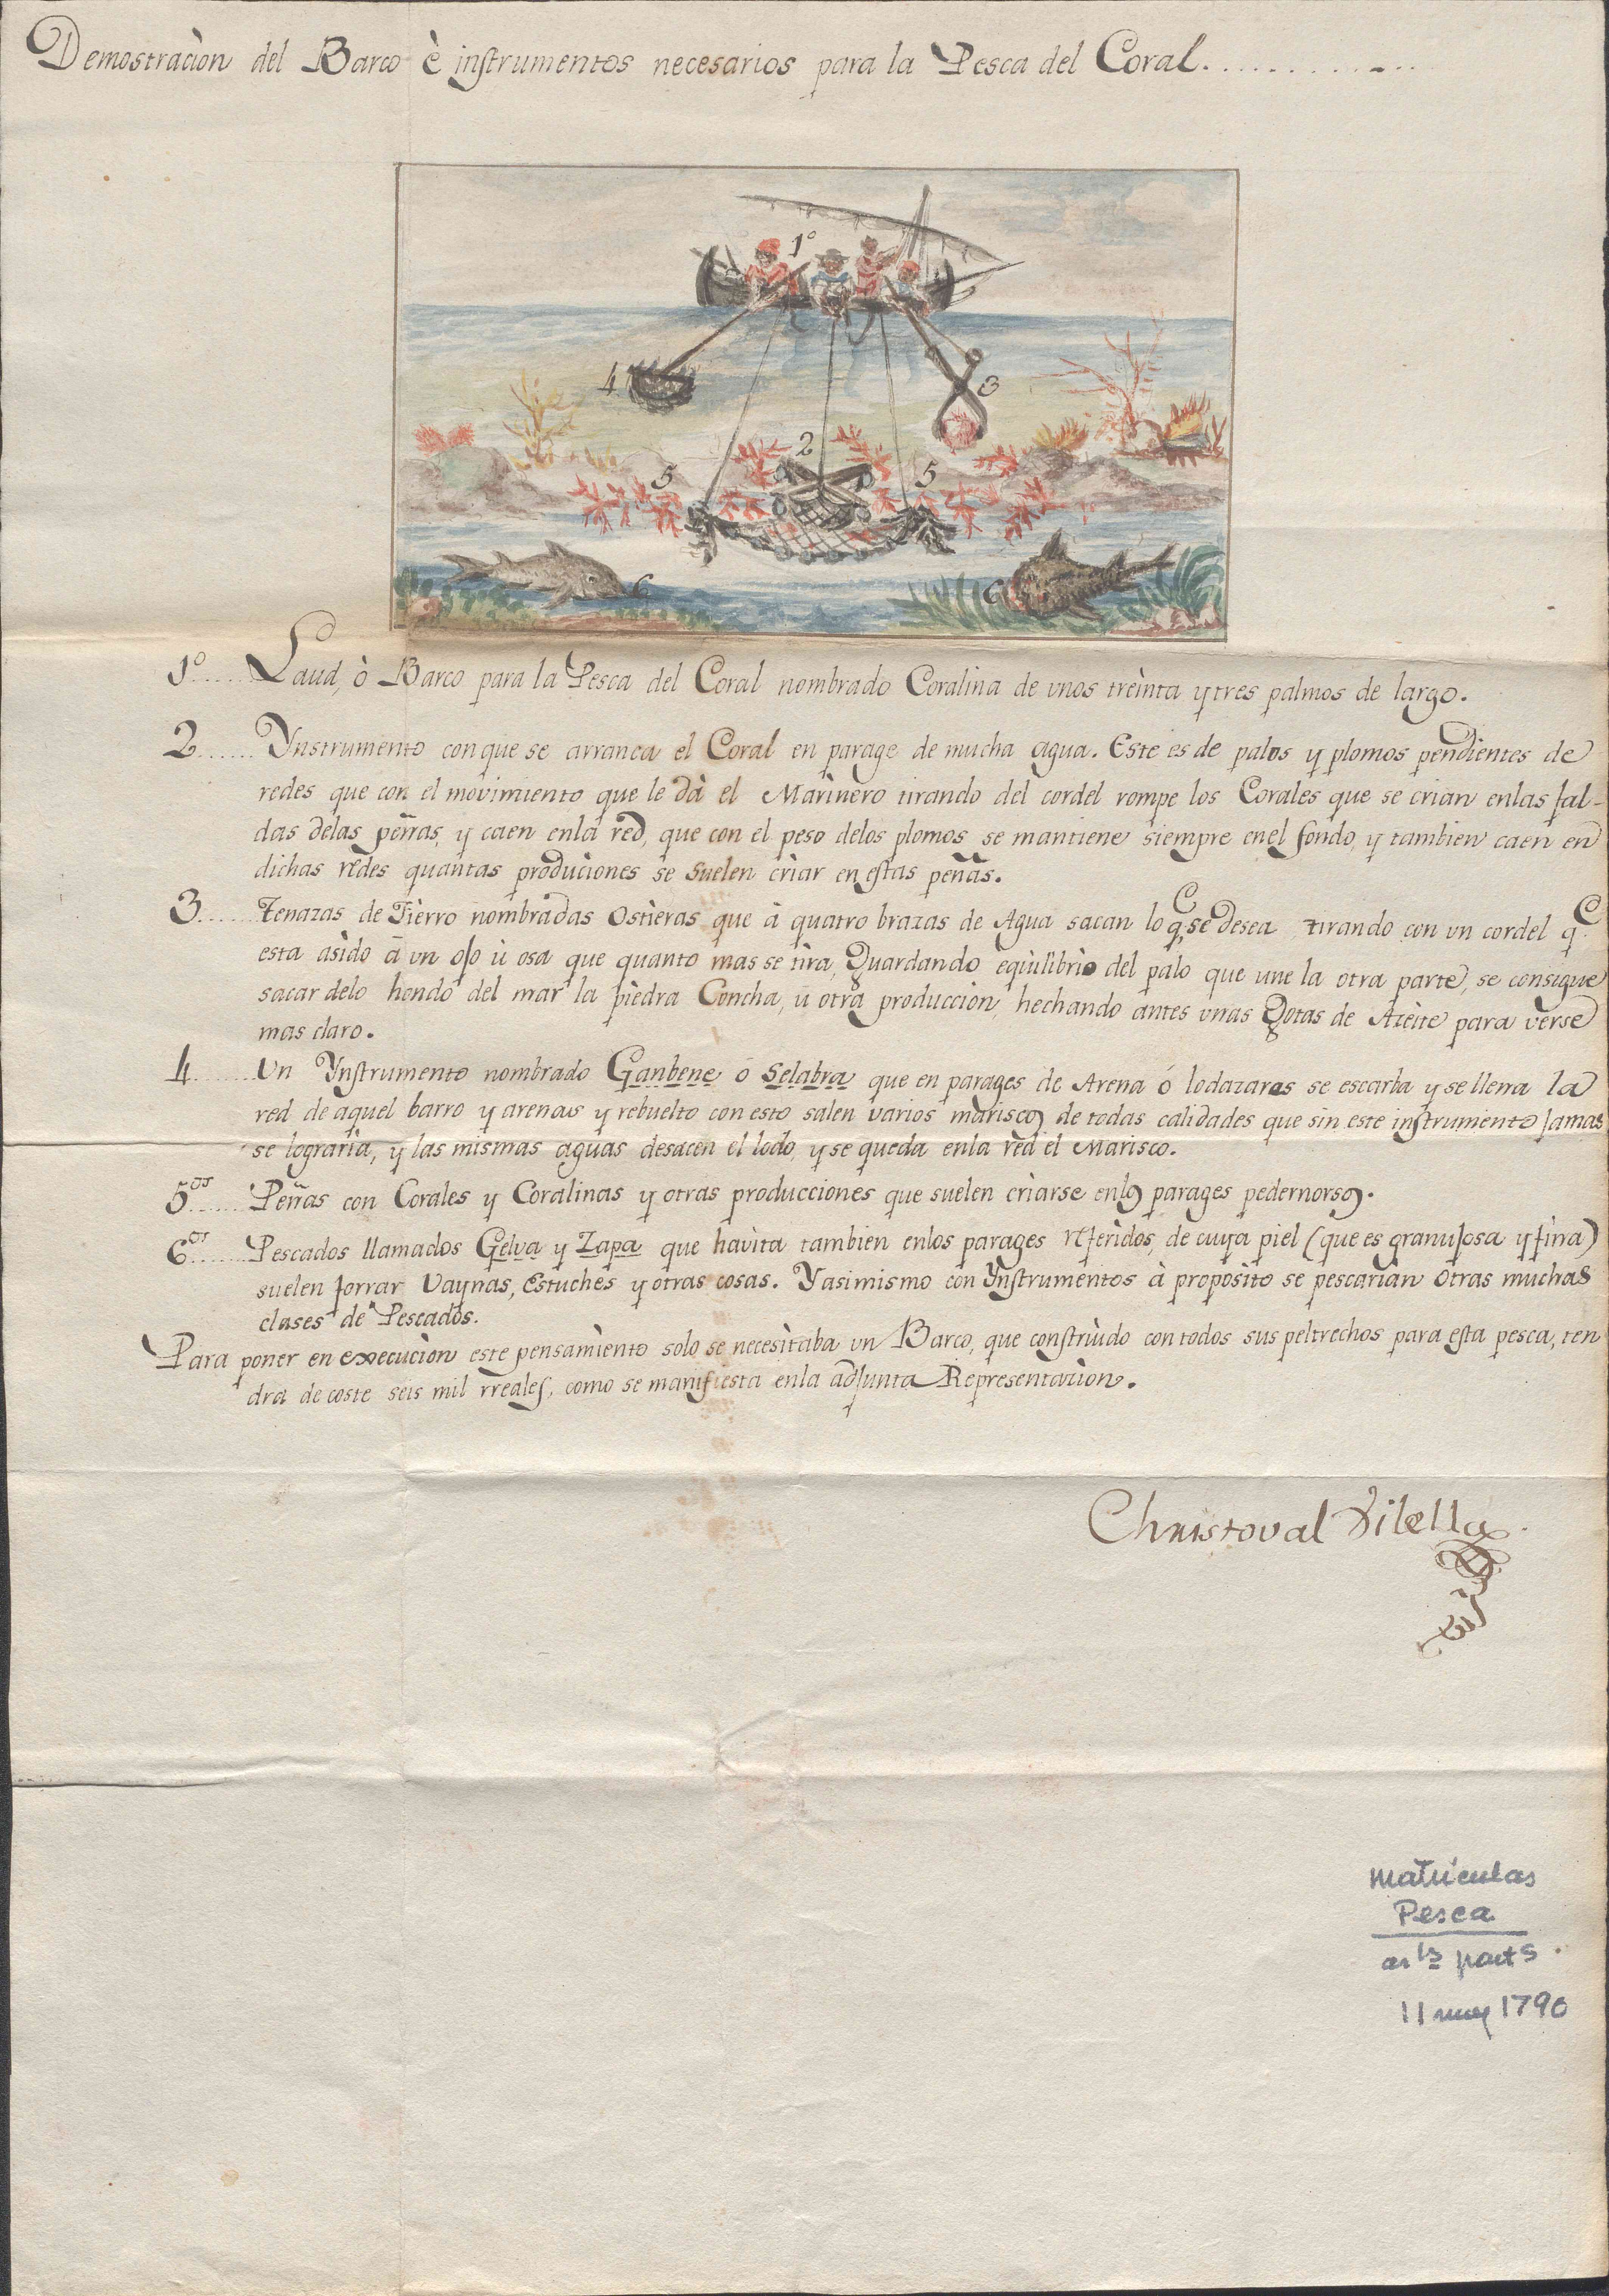 Demostraciòn del Barco è instrumentos necesarios para la Pesca del Coral.............
1º
4
3
2
5
5
6
6
1º..... Laud, ò Barco para la Pesca del Coral nombrado Coralina de vnos treinta y tres palmos de largo.
2...... Ynstrumento con que se arranca el Coral en parage de mucha agua. Este es de palos y plomos pendientes de
redes que con el movimiento que le dà el Marinero tirando del cordel rompe los Corales que se crian enlas fal-
das delas peñas, y caen enla red, que con el peso delos plomos se mantiene siempre enel fondo, y tambien caen en
dichas redes quantas produciones se suelen criar en estas peñas.
3...... Tenazas de Fierro nombradas Ostieras que à quatro brazas de Agua sacan lo q. se desea tirando con vn cordel q.
esta asido à vn ojo ù osa que quanto mas se tira, Guardando equilibrio del palo que une la otra parte, se consigue
sacar delo hondo del mar la piedra Concha, u otra produccion, hechando antes vnas Gotas de Azeite para verse
mas claro.
4...... Un Ynstrumento nombrado Ganbene ó Selabra que en parages de Arena ó lodazares se escarba y se llena la
red de aquel barro y arenas y rebuelto con esto salen varios mariscos de todas calidades que sin este instrumento jamas
se lograria, y las mismas aguas desacen el lodo, y se queda enla red el Marisco.
5.os..... Peñas con Corales y Coralinas y otras producciones que suelen criarse enlos parages pedernorsos.
6.os..... Pescados llamados Gelva y Zapa que havita tambien enlos parages referidos, de cuya piel (que es granujosa y fina)
suelen forrar Vaynas, Estuches y otras cosas. Yasimismo con Ynstrumentos à proposito se pescarian otras muchas
clases de Pescados.
Para poner en execucion este pensamiento solo se necesitaba un Barco, que construido con todos sus peltrechos para esta pesca, ten
dra de coste seis mil rreales, como se manifiesta enla adjunta Representazion.
Christoval Vilella
Matriculas
Pesca
parts
11 1790